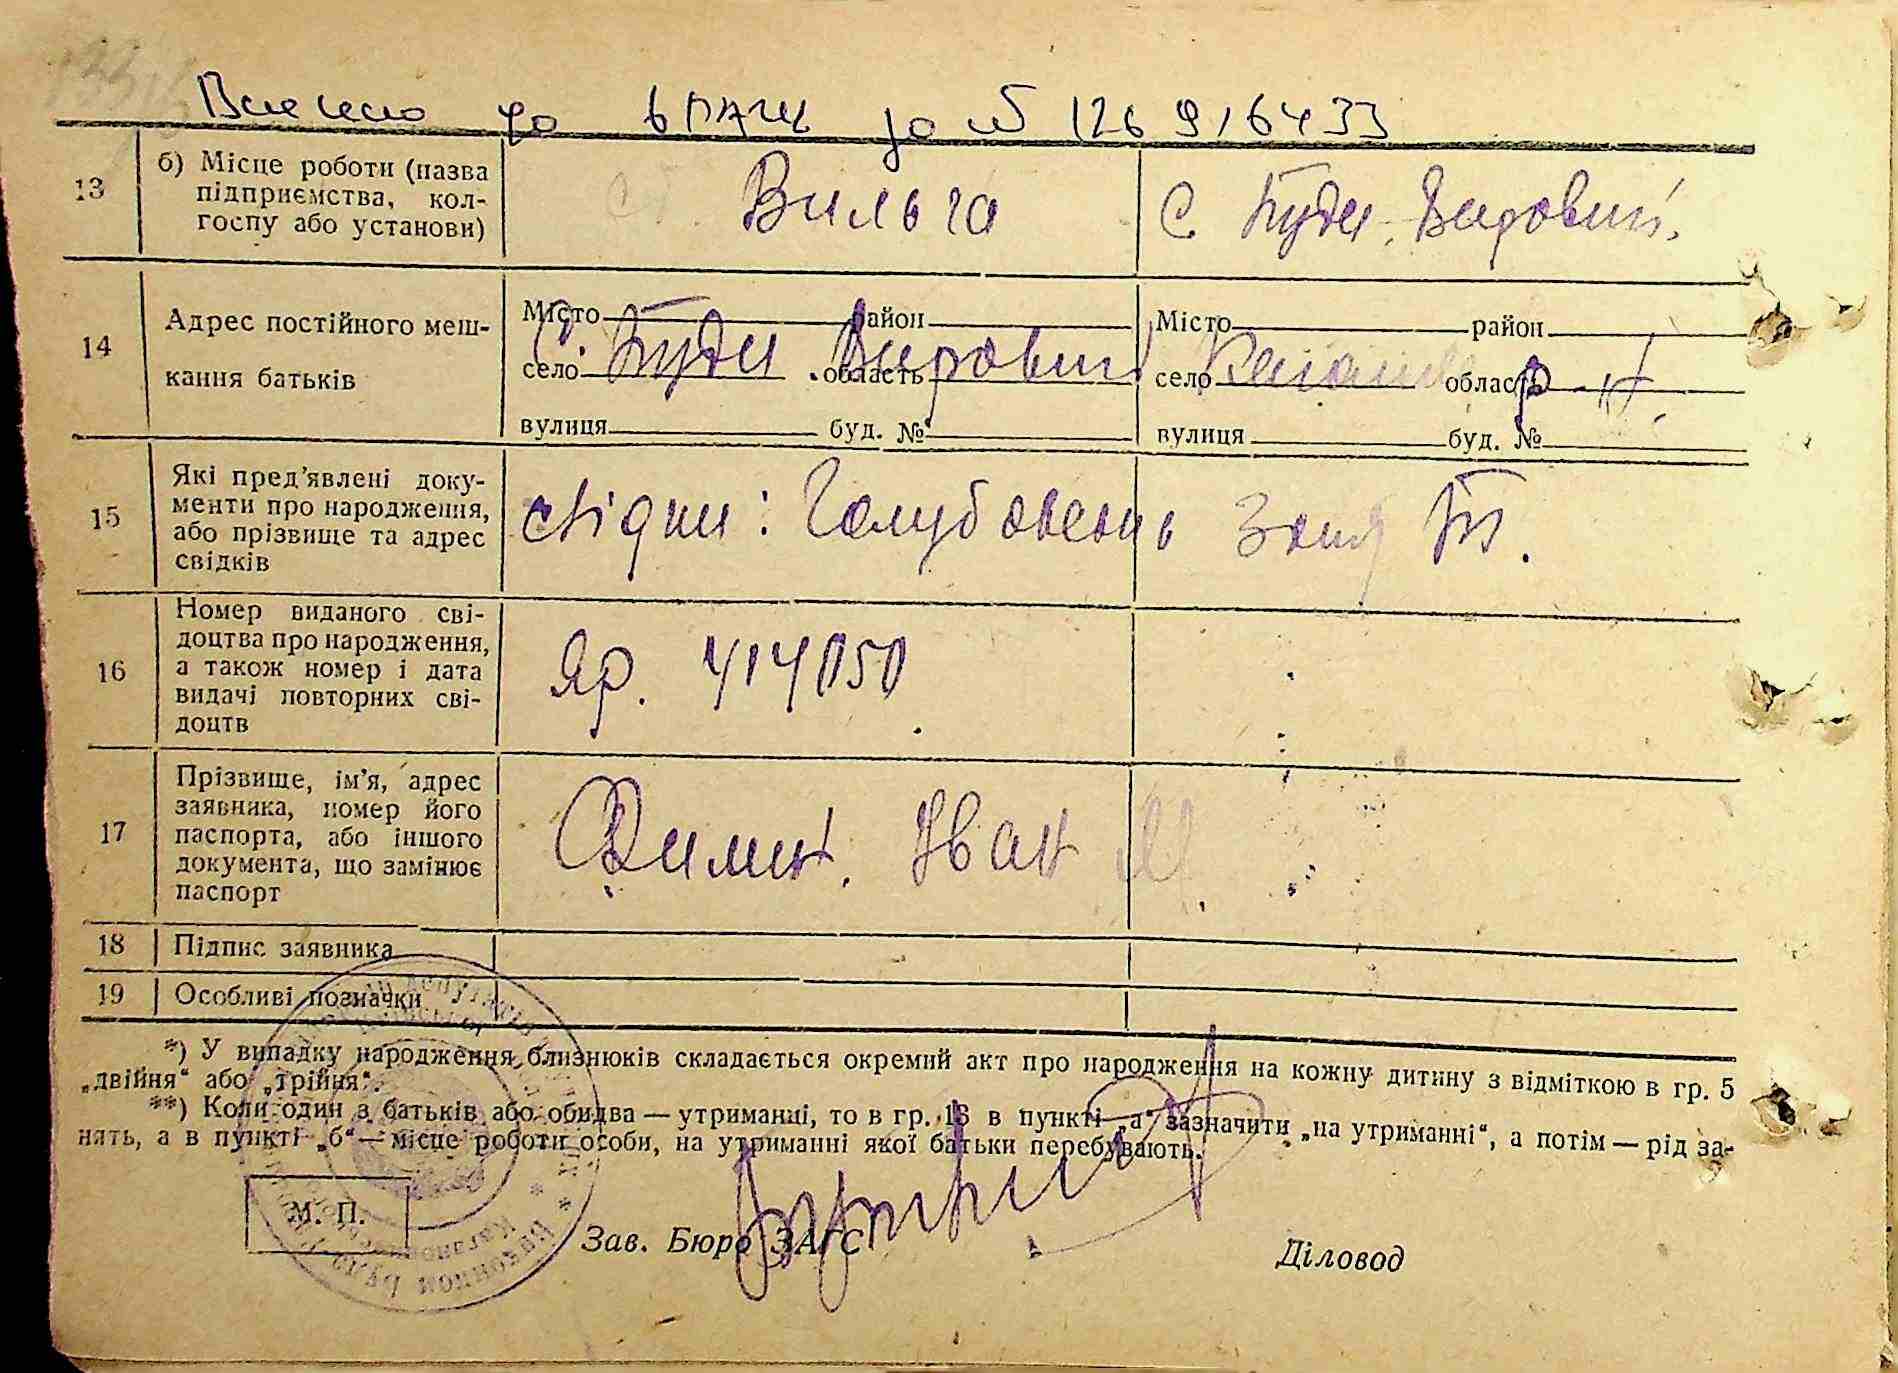 Внесено до ВПАЧ за № 126916433
13
б) Місце роботи (назва підприємства, кол-
госпу або установи)
Вильга
с. Буди Вировий.
14
Адрес постійного меш-
кання батьків
Місто район
с. Буди Вировий
село область
вулиця буд. №
Місто район
село область
р-н.
вулиця буд. №
15
Які пред'явлені доку-
менти про народження,
або прізвище та адрес
свідків
свідки: Голубовень Зоня
16
Номер виданого сві-
доцтва про народження,
а також номер і дата
видачі повторних сві-
доцтв
Яр. 414050
17
Прізвище, ім'я, адрес
заявника, номер його
паспорта, або іншого
документа, що замінює
паспорт
Іван М.
18 Підпис заявника
19 Особливі позначки
*) У випадку народження близнюків складається окремий акт про народження на кожну дитину з відміткою в гр. 5
„двійня“ або „трійня“.
**) Коли один з батьків або обидва — утриманці, то в гр. 13 в пункті „а“ зазначити „на утриманні“, а потім — рід за-
нять, а в пункті „б“ — місце роботи особи, на утриманні якої батьки перебувають.
М. П.
Зав. Бюро ЗАГС
Діловод